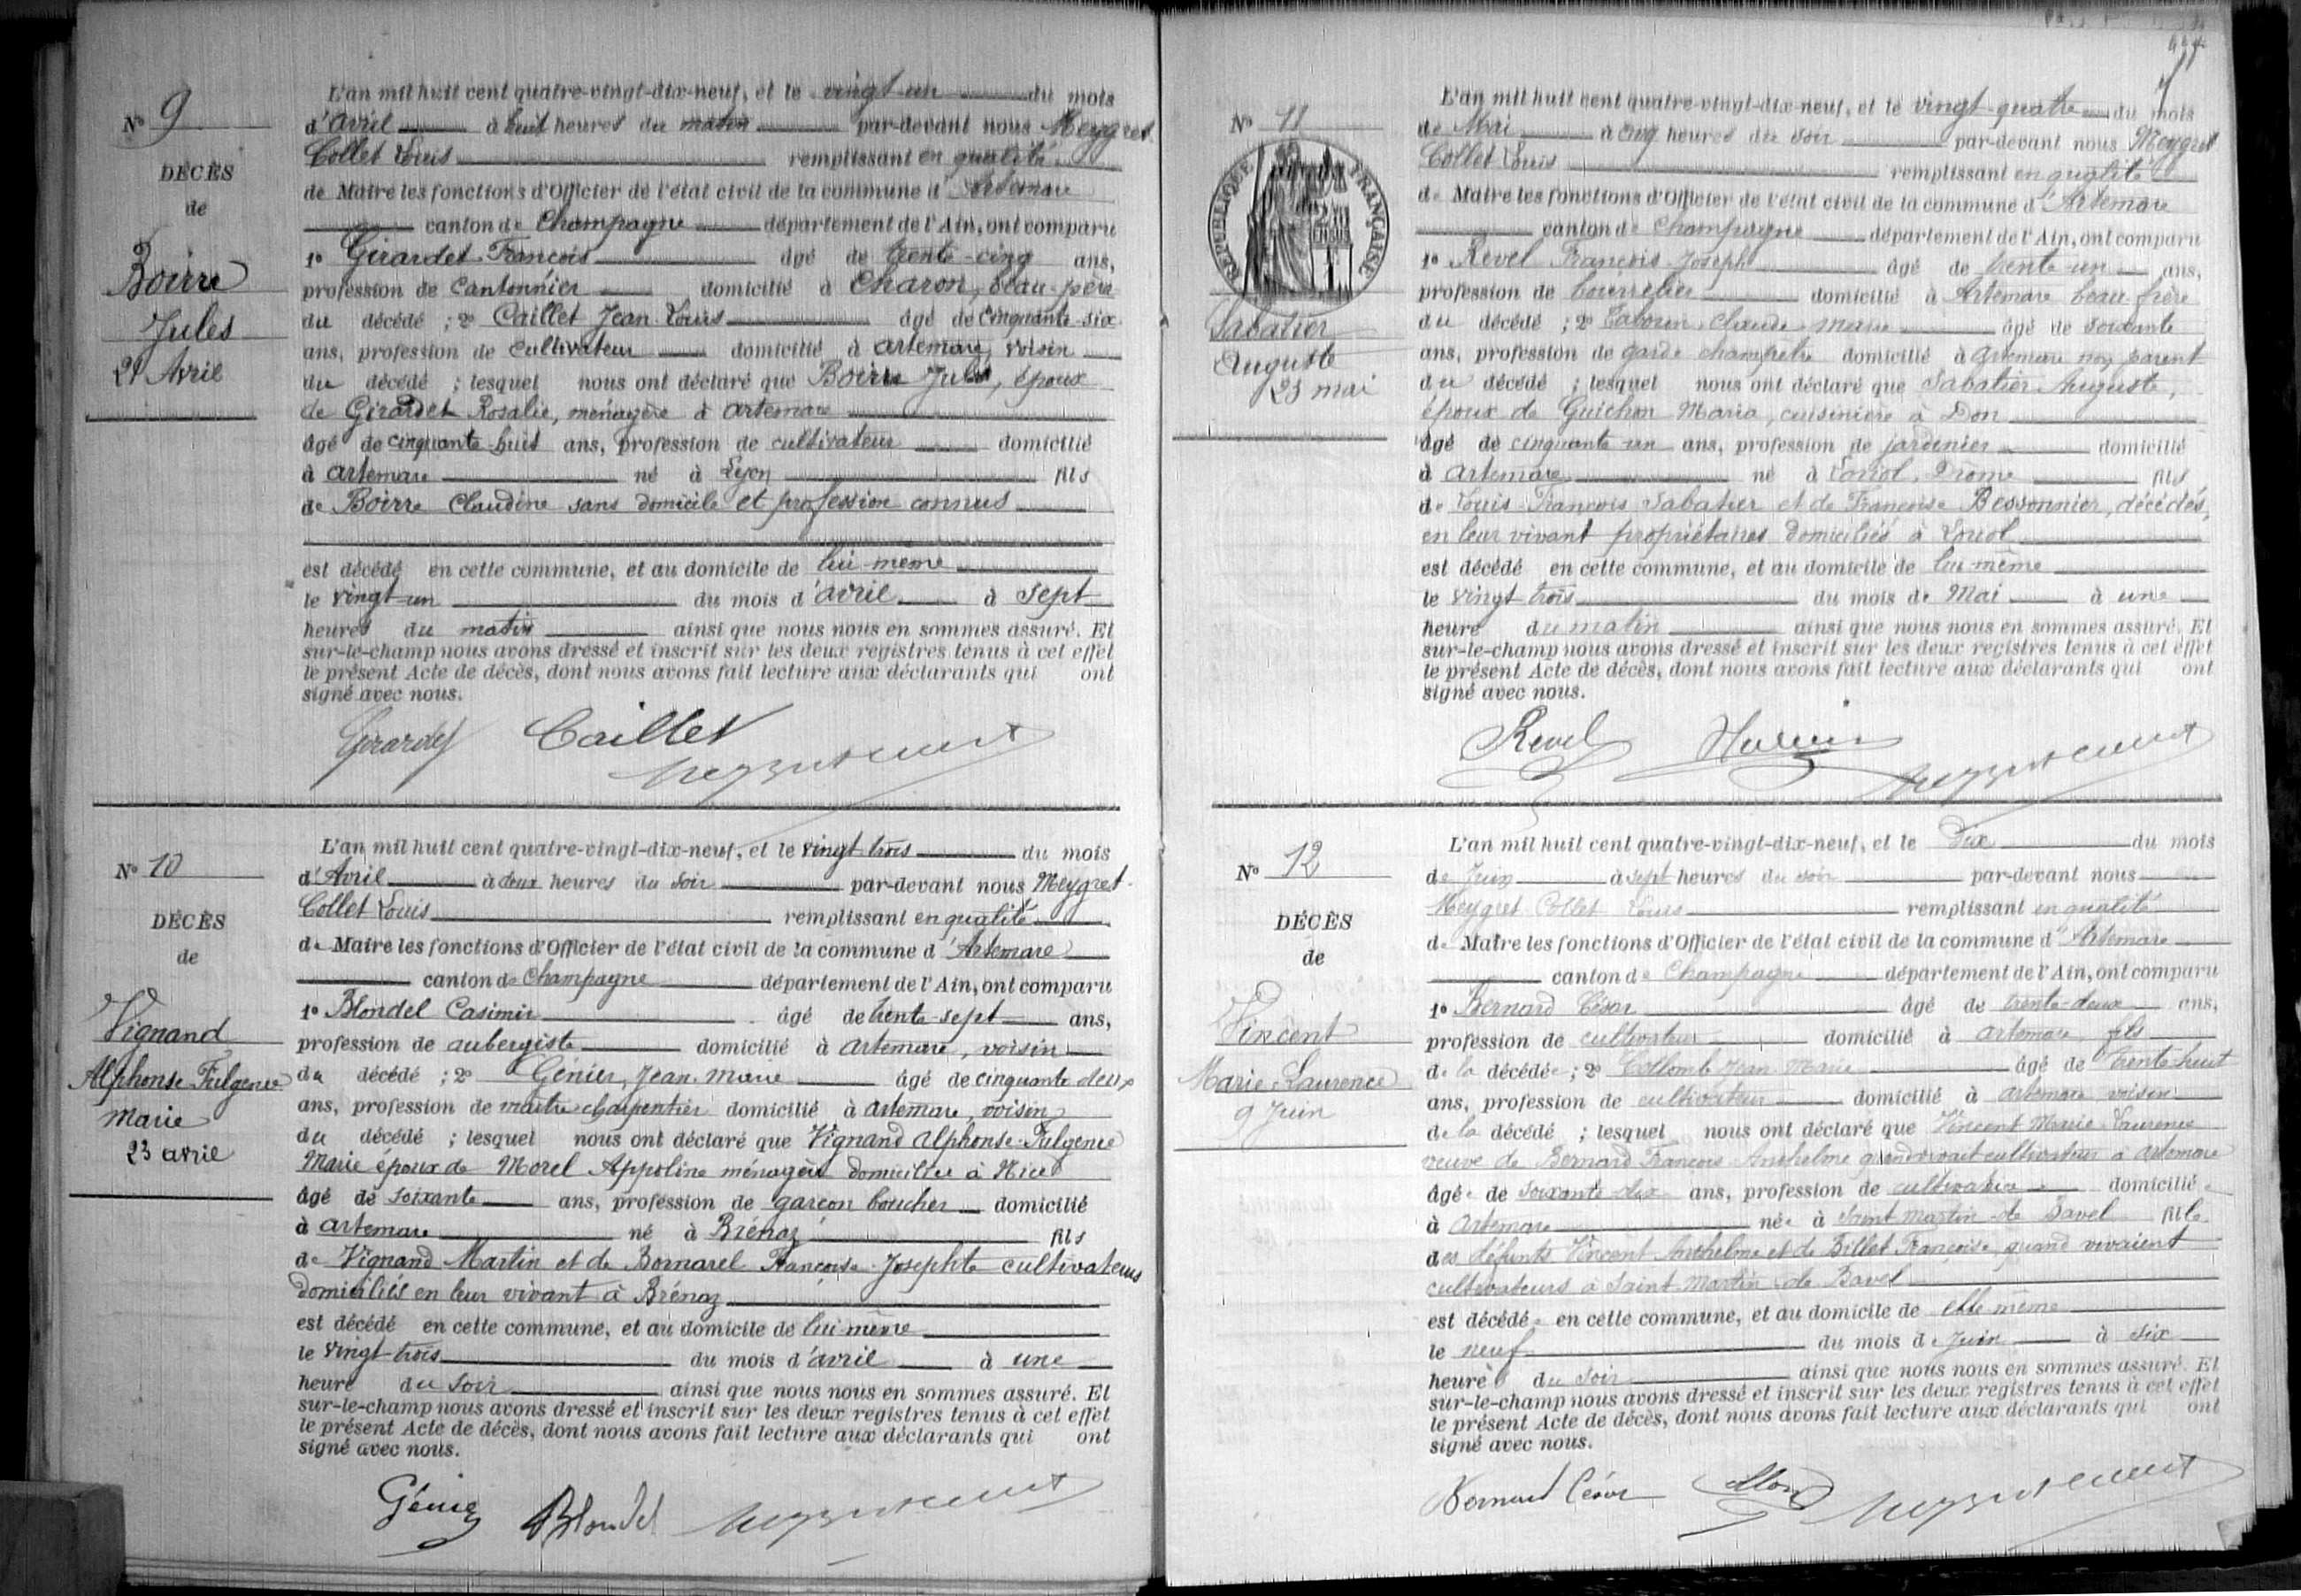 N° 9
DÉCÈS
de
Boirre
Jules
21 Avril
L'an mil huit cent quatre-vingt-dix-neuf, et le vingt-un du mois
d'avril à huit heures du matin par-devant nous Meygret
Collet Louis remplissant en qualité
de Maire les fonctions d'Officier de l'état civil de la commune d'Artemare
canton de Champagne département de l'Ain, ont comparu
1° Girardet François âgé de trente-cinq ans,
profession de Cantonnier domicilié à Charon, beau-père
du décédé ; 2° Caillet Jean Louis âgé de cinquante-six
ans, profession de cultivateur domicilié à artemare, voisin
du décédé ; lesquel nous ont déclaré que Boirre Jules, époux
de Girardet Rosalie, ménagère à artemare
âgé de cinquante-huit ans, profession de cultivateur domicilié
à artemare né à Lyon fils
de Boirre Claudine sans domicile et profession connus
est décédé en cette commune, et au domicile de lui-même
le vingt-un du mois d'avril à sept
heures du matin ainsi que nous nous en sommes assuré. Et
sur-le-champ nous avons dressé et inscrit sur les deux registres tenus à cet effet
le présent Acte de décès, dont nous avons fait lecture aux déclarants qui ont
signé avec nous.
Girardet Caillet
N° 10
DÉCÈS
de
Vignand
Alphonse Fulgence
Marie
23 avril
L'an mil huit cent quatre-vingt-dix-neuf, et le vingt-trois du mois
d'Avril à deux heures du soir par-devant nous Meygret-
Collet Louis remplissant en qualité
de Maire les fonctions d'Officier de l'état civil de la commune d'Artemare
canton de Champagne département de l'Ain, ont comparu
1° Blondel Casimir âgé de trente-sept ans,
profession de aubergiste domicilié à artemare, voisin
du décédé ; 2° Génier, Jean-Marie âgé de cinquante deux
ans, profession de maître charpentier domicilié à artemare, voisin
du décédé ; lesquel nous ont déclaré que Vignand Alphonse-Fulgence
Marie époux de Morel Appoline ménagère domiciliée à Nice
âgé de soixante ans, profession de garçon boucher domicilié
à artemare né à Brénaz fils
de Vignand Martin et de Bornarel Françoise-Josephte cultivateurs
domiciliés en leur vivant à Brénaz
est décédé en cette commune, et au domicile de lui-même
le vingt-trois du mois d'avril à une
heure du soir ainsi que nous nous en sommes assuré. Et
sur-le-champ nous avons dressé et inscrit sur les deux registres tenus à cet effet
le présent Acte de décès, dont nous avons fait lecture aux déclarants qui ont
signé avec nous.
Génier Blondel
N° 11
RÉPUBLIQUE FRANÇAISE
Sabatier
Auguste
23 mai
L'an mil huit cent quatre-vingt-dix-neuf, et le vingt-quatre du mois
de Mai à cinq heures du soir par-devant nous Meygret
Collet Louis remplissant en qualité
de Maire les fonctions d'Officier de l'état civil de la commune d'Artemare
canton de Champagne département de l'Ain, ont comparu
1° Revel François-Joseph âgé de trente-un ans,
profession de bourrelier domicilié à Artemare beau-frère
du décédé ; 2° Claude Marie âgé de soixante
ans, profession de garde champêtre domicilié à artemare non parent
du décédé ; lesquel nous ont déclaré que Sabatier Auguste,
époux de Guichon Maria, cuisinière à Don
âgé de cinquante-un ans, profession de jardinier domicilié
à artemare né à Loriol, Drome fils
de Louis-François Sabatier et de Françoise Bessonnier, décédés,
en leur vivant propriétaires domiciliés à Loriol
est décédé en cette commune, et au domicile de lui-même
le vingt-trois du mois de Mai à une
heure du matin ainsi que nous nous en sommes assuré. Et
sur-le-champ nous avons dressé et inscrit sur les deux registres tenus à cet effet
le présent Acte de décès, dont nous avons fait lecture aux déclarants qui ont
signé avec nous.
Revel
N° 12
DÉCÈS
de
Vincent
Marie-Laurence
9 Juin
L'an mil huit cent quatre-vingt-dix-neuf, et le Dix du mois
de Juin à sept heures du soir par-devant nous
Meygret Collet Louis remplissant en qualité
de Maire les fonctions d'Officier de l'état civil de la commune d'Artemare
canton de Champagne département de l'Ain, ont comparu
1° Bernard César âgé de trente-deux ans,
profession de cultivateur domicilié à artemare fils
de la décédée ; 2° Collomb Jean Marie âgé de trente-huit
ans, profession de cultivateur domicilié à artemare voisin
de la décédé ; lesquel nous ont déclaré que Vincent Marie Laurence
veuve de Bernard François-Anthelme quand vivait cultivateur à artemare
âgée de soixante-dix ans, profession de cultivatrice domiciliée
à Artemare née à Saint Martin-de Bavel fille
des défunts Vincent Anthelme et de Billet Françoise, quand vivaient
cultivateurs à Saint Martin de Bavel
est décédée en cette commune, et au domicile de elle même
le neuf du mois de Juin à six
heures du soir ainsi que nous nous en sommes assuré. Et
sur-le-champ nous avons dressé et inscrit sur les deux registres tenus à cet effet
le présent Acte de décès, dont nous avons fait lecture aux déclarants qui ont
signé avec nous.
Bernard César